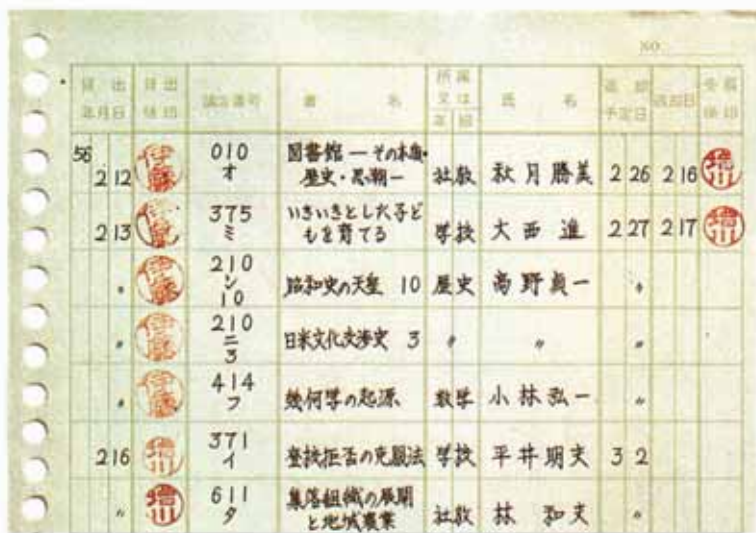 NO.
貸出年月日 貸出係印 請求番号 書名 所属又は年組 氏名 返却予定日 返却日
56 2 12 伊藤 010 オ 図書館―その本質・歴史・思潮― 社教 秋月勝美 2 26 2 16
2 13 伊藤 375 ミ いきいきとした子どもを育てる 学校 大西 進 2 27 2 17
〃 伊藤 210 シ 10 昭和史の天皇 10 歴史 高野貞一 〃
〃 伊藤 210 ニ 3 日米文化交渉史 3 〃 〃 〃
〃 伊藤 414 フ 幾何学の起源 数学 小林弘一 〃
2 16 371 イ 登校拒否の克服法 学校 平井明夫 3 2
〃 611 タ 集落組織の展開と地域農業 社教 林 和夫 〃